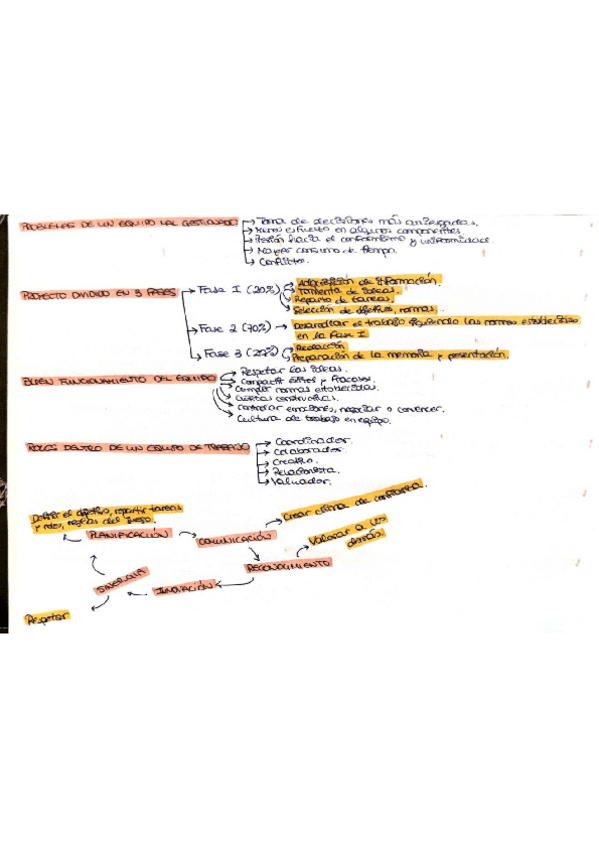 PROBLEMAS DE UN EQUIPO MAL GESTIONADO
Toma de decisiones más arriesgadas.
Menor esfuerzo en algunos componentes.
Presión hacia el conformismo y uniformidad.
Mayor consumo de tiempo.
Conflictos.
PROYECTO DIVIDIDO EN 3 FASES
Fase I (20%)
Adquisición de información.
Tormenta de ideas.
Reparto de tareas.
Selección de objetivos, normas.
Fase 2 (70%)
Desarrollar el trabajo siguiendo las normas establecidas
en la Fase I
Fase 3 (20%)
Redacción
Preparación de la memoria y presentación.
BUEN FUNCIONAMIENTO DEL EQUIPO
Respetar las ideas.
Compartir éxitos y fracasos.
Cumplir normas establecidas.
Críticas constructivas.
Controlar emociones, negociar o convencer.
Cultura de trabajo en equipo.
ROLES DENTRO DE UN EQUIPO DE TRABAJO
Coordinador.
Colaborador.
Creativo.
Relacionista.
Valuador.
Definir el objetivo, repartir tareas
y roles, reglas del juego.
PLANIFICACIÓN
COMUNICACIÓN
Crear clima de confianza.
RECONOCIMIENTO
Valorar a los
demás.
INNOVACIÓN
SINERGIA
Respetar